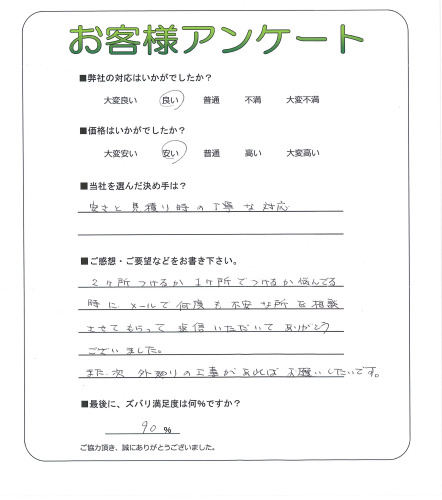 お客様アンケート
■弊社の対応はいかがでしたか？
大変良い 良い 普通 不満 大変不満
■価格はいかがでしたか？
大変安い 安い 普通 高い 大変高い
■当社を選んだ決め手は？
安さと見積り時の丁寧な対応
■ご感想・ご要望などをお書き下さい。
2ヶ所つけるか 1ヶ所でつけるか悩んでる
時に メールで何度も不安な所を相談
させてもらって 返信いただいて ありがとう
ございました。
また次 外廻りの工事があればお願いしたいです。
■最後に、ズバリ満足度は何％ですか？
90 %
ご協力頂き、誠にありがとうございました。